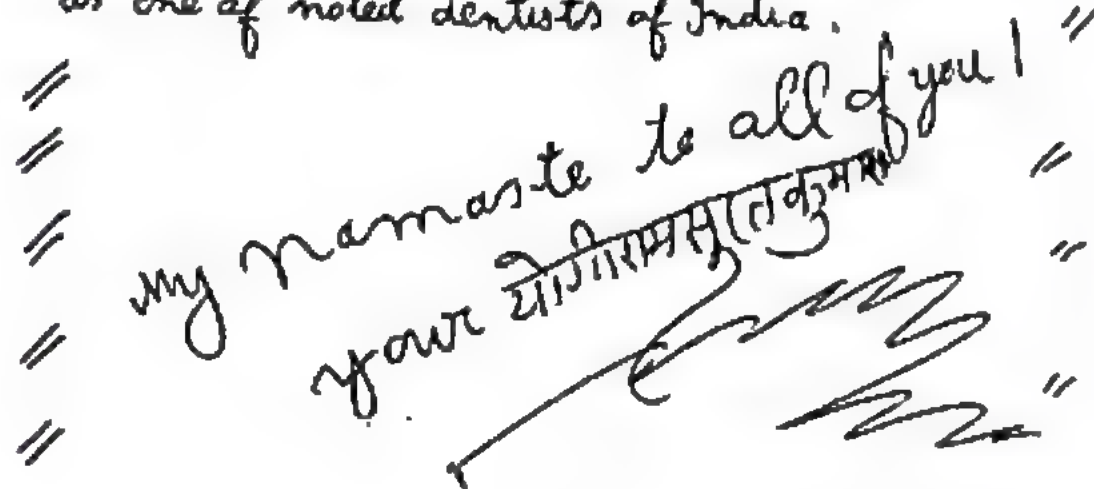 as one of noted dentists of India.
My Namaste to all of you!
your योगीरामसुरतकुमार